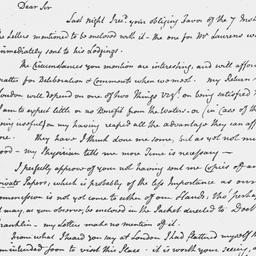 Dear Sir
Last night Rec'd your obliging favor of the 7 Inst
The Letters mentioned to be enclosed with it - the one for Mr Laurens wa
immediately sent to his Lodgings.
The Circumstances you mention are interesting, and will affor
matter for Deliberation & Comments when we meet. My Return
London will depend on one of two Things Viz. on being satisfied
I am to expect little or no Benefit from the Waters - or (in Case of the
being useful) on my having reaped all the advantage they can aff
me. They have I think done me some, but as yet not m
good - my Physician tells me more Time is necessary -
I perfectly approve of your not having sent me Copies of
private Papers, which is probably of the less Importance as our
is not yet come to either of our Hands. The
may, as you observe, be enclosed in the Packet directed to Doct
Franklin - my Letters make no mention of it.
From what I heard you say at London I had flattered myself
intended soon to visit this Place - it is worth your seeing, a